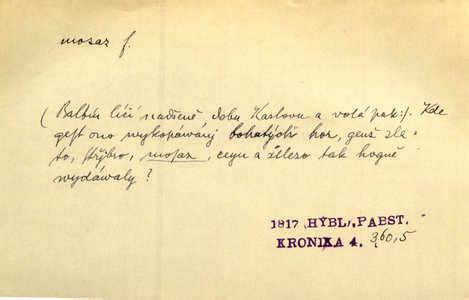 mosaz f.
(Balbín líčí nadšeně dobu Karlovu a volá pak:). Kde
gest ono wykopáwáný bohatých hor, genž zla-
to, střjbro, mosaz, cyn a železo tak hogně
wydáwaly?
1817 (HÝBL), PABST.
KRONIKA 4. 360,5